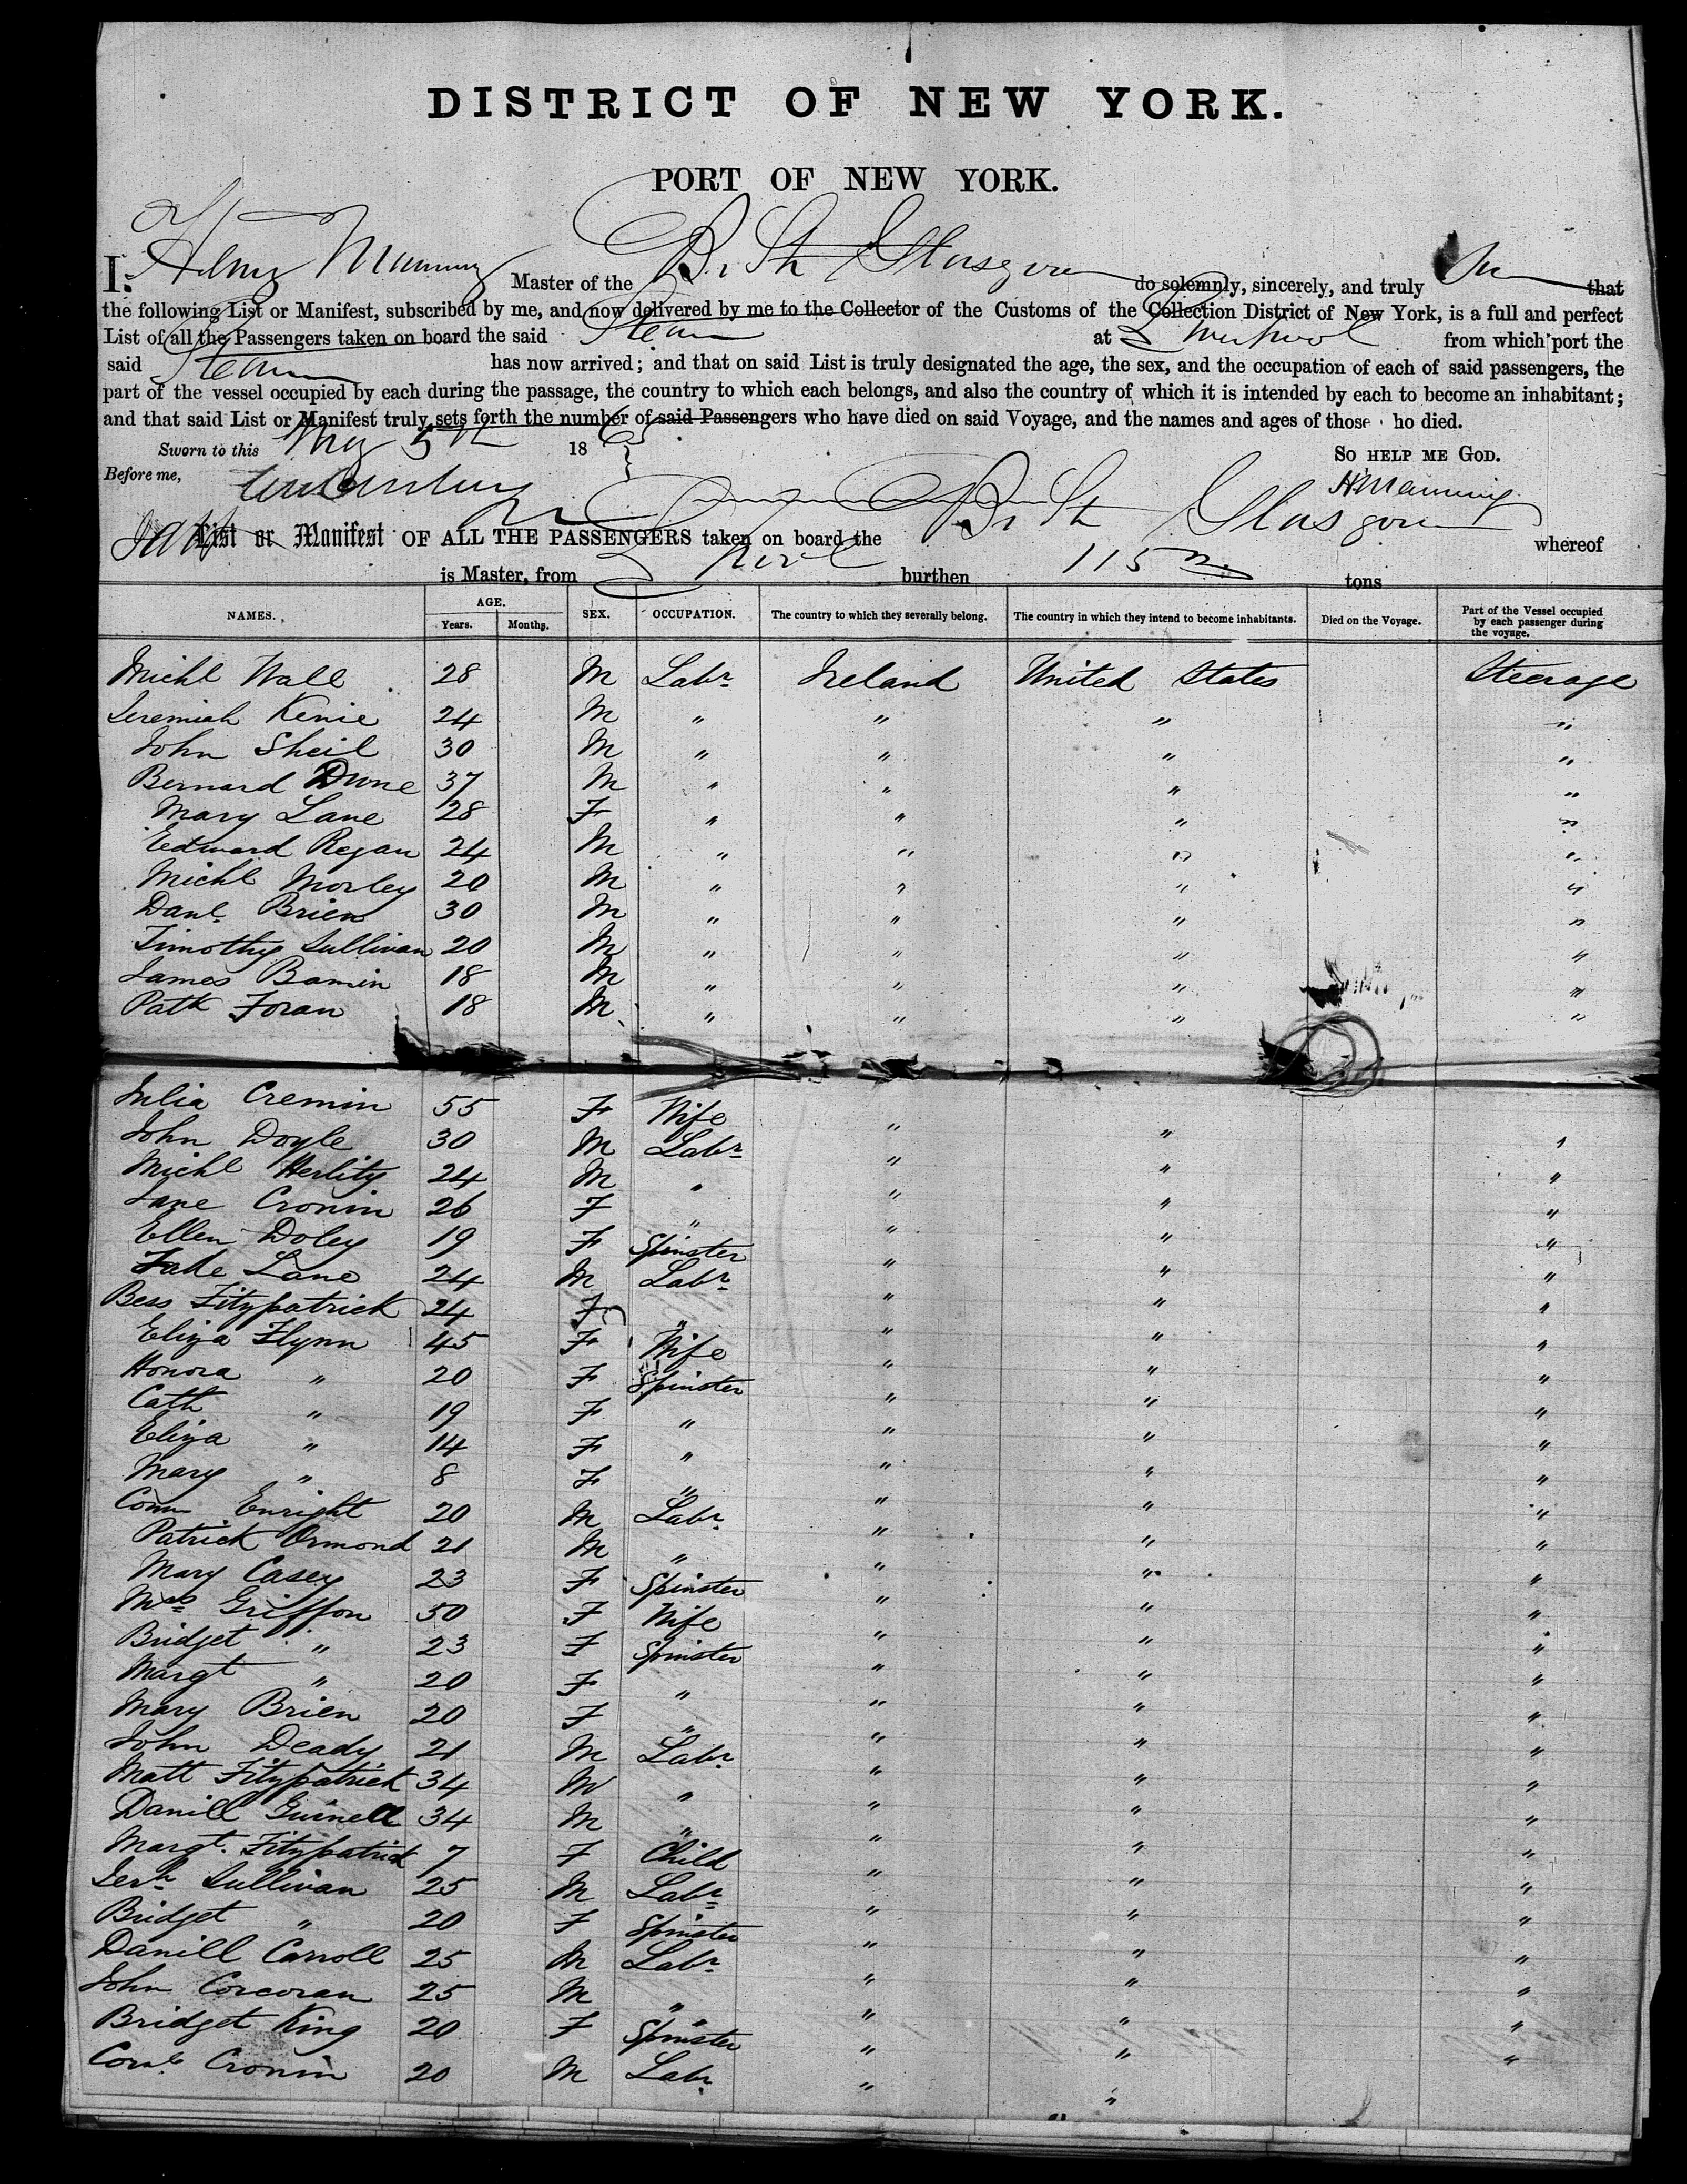 DISTRICT OF NEW YORK.
PORT OF NEW YORK.
I, Henry Manning Master of the Br Str Glasgow do solemnly, sincerely, and truly that
the following List or Manifest, subscribed by me, and now delivered by me to the Collector of the Customs of the Collection District of New York, is a full and perfect
List of all the Passengers taken on board the said Steamer at Liverpool from which port the
said Steamer has now arrived; and that on said List is truly designated the age, the sex, and the occupation of each of said passengers, the
part of the vessel occupied by each during the passage, the country to which each belongs, and also the country of which it is intended by each to become an inhabitant;
and that said List or Manifest truly sets forth the number of said Passengers who have died on said Voyage, and the names and ages of those ho died.
Sworn to this May 5th 18 SO HELP ME GOD.
Before me, H. Manning
List or Manifest OF ALL THE PASSENGERS taken on board the Br Str Glasgow whereof
is Master, from L pool burthen tons
NAMES. AGE. Years. Months. SEX. OCCUPATION. The country to which they severally belong. The country in which they intend to become inhabitants. Died on the Voyage. Part of the Vessel occupied by each passenger during the voyage.
Michl Wall 28 M Labr Ireland United States Steerage
Jeremiah Kenie 24 M " " " "
John Sheil 30 M " " " "
Bernard Dune 37 M " " " "
Mary Lane 28 F " " " "
Edward Regan 24 M " " " "
Michl Morley 20 M " " " "
Danl. Brien 30 M " " " "
Timothy Sullivan 20 M " " " "
James Bamin 18 M " " " "
Patk Foran 18 M " " " "
Julia Cremin 55 F Wife " " "
John Doyle 30 M Labr " " "
Michl Herlity 24 M " " " "
Jane Cronin 26 F " " " "
Ellen Doley 19 F Spinster " " "
Jake Lane 24 M Labr " " "
Bess Fitzpatrick 24 F " " " "
Eliza Flynn 45 F Wife " " "
Honora " 20 F Spinster " " "
Cath " 19 F " " " "
Eliza " 14 F " " " "
Mary " 8 F " " " "
Conn Enright 20 M Labr " " "
Patrick Ormond 21 M " " " "
Mary Casey 23 F Spinster " " "
Mrs Griffon 50 F Wife " " "
Bridget " 23 F Spinster " " "
Margt " 20 F " " " "
Mary Brien 20 F " " " "
John Deady 21 M Labr " " "
Matt Fitzpatrick 34 M " " " "
Danill Guinell 34 M " " " "
Margt. Fitzpatrick 7 F Child " " "
Jerh Sullivan 25 M Labr " " "
Bridget " 20 F Spinster " " "
Danill Carroll 25 M Labr " " "
John Corcoran 25 M " " " "
Bridget King 20 F Spinster " " "
Cornls Cronin 20 M Labr " "